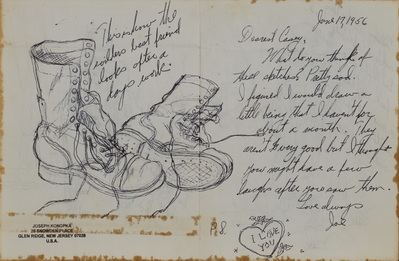 This is how the
soldiers best friend
looks after a
days work.
June 17, 1956
Dearest Casey,
What do you think of
these sketches? Pretty
I figured I would draw a
little being that I haven't for
about a month. They
aren't very good but I thought
you might have a few
laughs after you saw them.
Love always
Joe
I LOVE
YOU
JOSEPH KONOPKA
26 SNOWDEN PLACE
GLEN RIDGE, NEW JERSEY 07028
U.S.A.